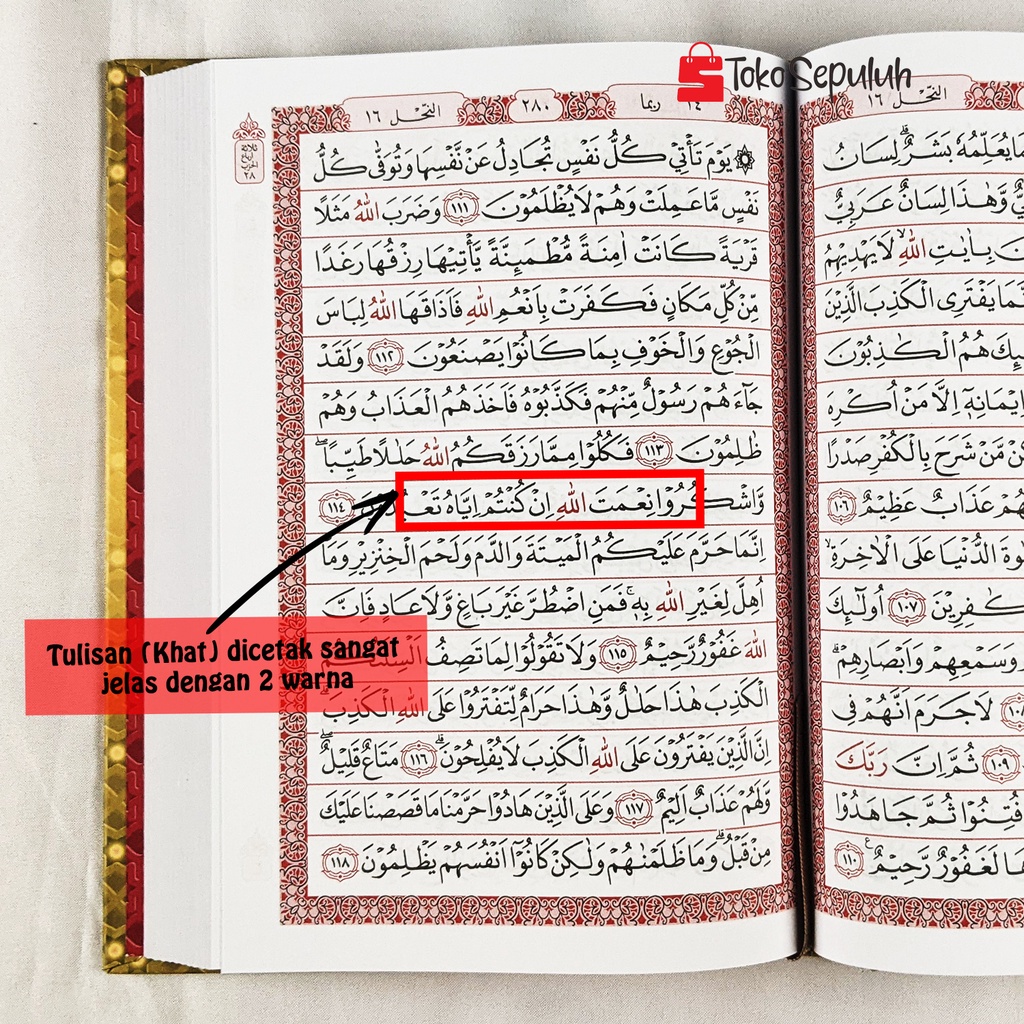 TokoSepuluh
النّحل ١٦
٢٨٠
ربما ١٤
ثلاثة ارباع الحزب ٢٨
يَوْمَ تَأْتِيْ كُلُّ نَفْسٍ تُجَادِلُ عَنْ نَّفْسِهَا وَتُوَفّٰى كُلُّ
نَفْسٍ مَّا عَمِلَتْ وَهُمْ لَا يُظْلَمُوْنَ ١١١ وَضَرَبَ اللّٰهُ مَثَلًا
قَرْيَةً كَانَتْ اٰمِنَةً مُّطْمَىِٕنَّةً يَّأْتِيْهَا رِزْقُهَا رَغَدًا
مِّنْ كُلِّ مَكَانٍ فَكَفَرَتْ بِاَنْعُمِ اللّٰهِ فَاَذَاقَهَا اللّٰهُ لِبَاسَ
الْجُوْعِ وَالْخَوْفِ بِمَا كَانُوْا يَصْنَعُوْنَ ١١٢ وَلَقَدْ
جَاۤءَهُمْ رَسُوْلٌ مِّنْهُمْ فَكَذَّبُوْهُ فَاَخَذَهُمُ الْعَذَابُ وَهُمْ
ظٰلِمُوْنَ ١١٣ فَكُلُوْا مِمَّا رَزَقَكُمُ اللّٰهُ حَلٰلًا طَيِّبًاۖ
وَّاشْكُرُوْا نِعْمَتَ اللّٰهِ اِنْ كُنْتُمْ اِيَّاهُ تَعْبُدُوْنَ ١١٤
اِنَّمَا حَرَّمَ عَلَيْكُمُ الْمَيْتَةَ وَالدَّمَ وَلَحْمَ الْخِنْزِيْرِ وَمَآ
اُهِلَّ لِغَيْرِ اللّٰهِ بِهٖۚ فَمَنِ اضْطُرَّ غَيْرَ بَاغٍ وَّلَا عَادٍ فَاِنَّ
اللّٰهَ غَفُوْرٌ رَّحِيْمٌ ١١٥ وَلَا تَقُوْلُوْا لِمَا تَصِفُ اَلْسِنَتُكُمُ
الْكَذِبَ هٰذَا حَلٰلٌ وَّهٰذَا حَرَامٌ لِّتَفْتَرُوْا عَلَى اللّٰهِ الْكَذِبَۗ
اِنَّ الَّذِيْنَ يَفْتَرُوْنَ عَلَى اللّٰهِ الْكَذِبَ لَا يُفْلِحُوْنَۗ ١١٦ مَتَاعٌ قَلِيْلٌۖ
وَّلَهُمْ عَذَابٌ اَلِيْمٌ ١١٧ وَعَلَى الَّذِيْنَ هَادُوْا حَرَّمْنَا مَا قَصَصْنَا عَلَيْكَ
مِنْ قَبْلُۗ وَمَا ظَلَمْنٰهُمْ وَلٰكِنْ كَانُوْٓا اَنْفُسَهُمْ يَظْلِمُوْنَ ١١٨
Tulisan (Khat) dicetak sangat
jelas dengan 2 warna
النّحل ١٦
يُعَلِّمُهٗ بَشَرٌۗ لِسَانُ
وَّهٰذَا لِسَانٌ عَرَبِيٌّ
بِاٰيٰتِ اللّٰهِۙ لَا يَهْدِيْهِمُ
يَفْتَرِى الْكَذِبَ الَّذِيْنَ
هُمُ الْكٰذِبُوْنَ
اِيْمَانِهٖٓ اِلَّا مَنْ اُكْرِهَ
مَّنْ شَرَحَ بِالْكُفْرِ صَدْرًا
عَذَابٌ عَظِيْمٌ ١٠٦
الدُّنْيَا عَلَى الْاٰخِرَةِۙ
١٠٧ اُولٰۤىِٕكَ
وَسَمْعِهِمْ وَاَبْصَارِهِمْۗ
لَا جَرَمَ اَنَّهُمْ فِى
١٠٩ ثُمَّ اِنَّ رَبَّكَ
فُتِنُوْا ثُمَّ جَاهَدُوْا
لَغَفُوْرٌ رَّحِيْمٌ ١١٠